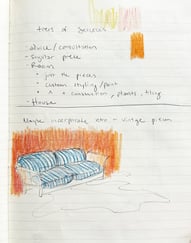 tiers of services
- advice / consultation
- singular piece
- Rooms
• just the pieces
• custom styling / paint
• ^ + construction, plants, tiling
- House
Maybe incorporate retro - vintage pieces